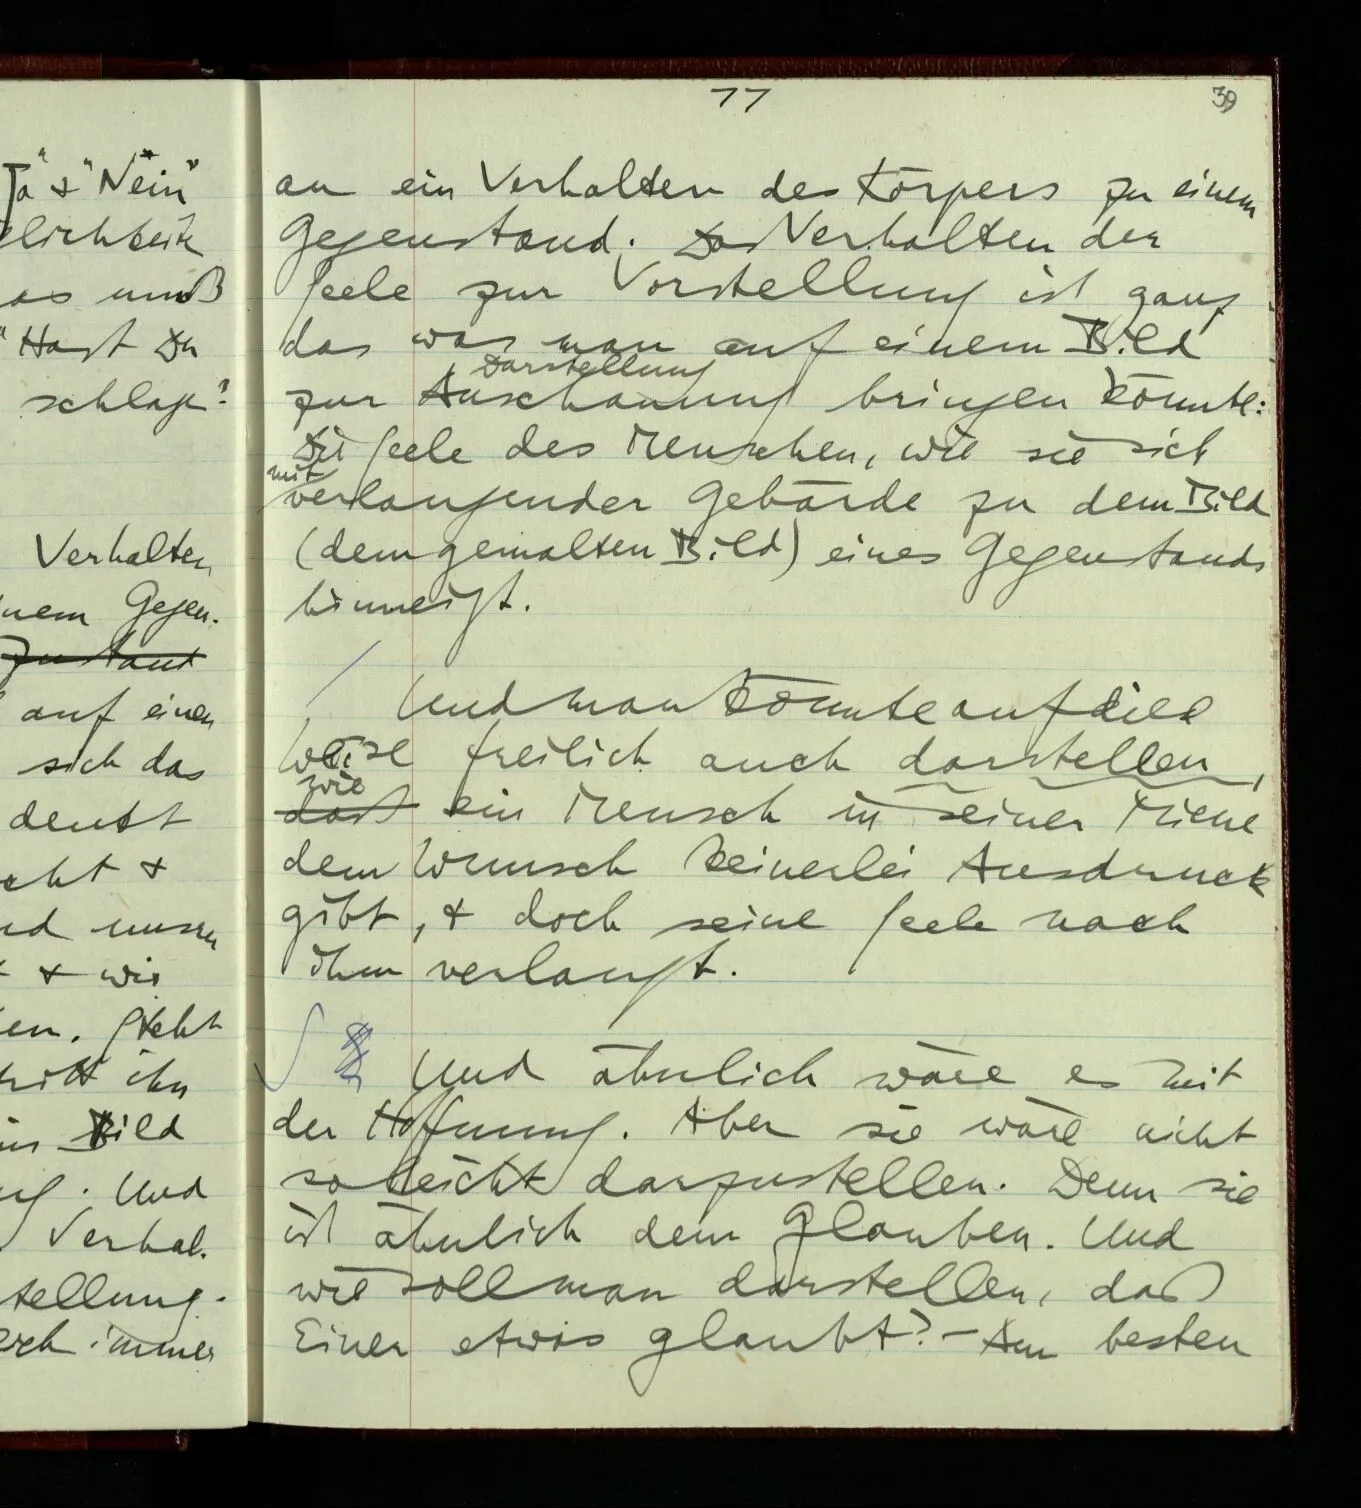 77
39
Ja" & "Nein"
as muß
"Hast Du
schlag?
Verhalten
nem Gegen-
zustand
auf einen
sich das
denkt
cht &
nd unsrer
& wie
en. Steht
tritt ihn
in Bild
Und
Verhal-
tellung.
immer
an ein Verhalten des Körpers zu einem
Gegenstand. Das Verhalten der
Seele zur Vorstellung ist ganz
das was man auf einem Bild
Darstellung
zur Anschauung bringen könnte:
Die Seele des Menschen, wie sie sich
mit
verlangender Gebärde zu dem Bild
(dem gemalten Bild) eines Gegenstands
hinneigt.
Und man könnte auf diese
Weise freilich auch darstellen,
wie
daß ein Mensch in seiner Miene
dem Wunsch keinerlei Ausdruck
gibt, & doch seine Seele nach
ihm verlangt.
Und ähnlich wäre es mit
der Hoffnung. Aber sie wäre nicht
so leicht darzustellen. Denn sie
ist ähnlich dem Glauben. Und
wie soll man darstellen, daß
Einer etwas glaubt? – Am besten